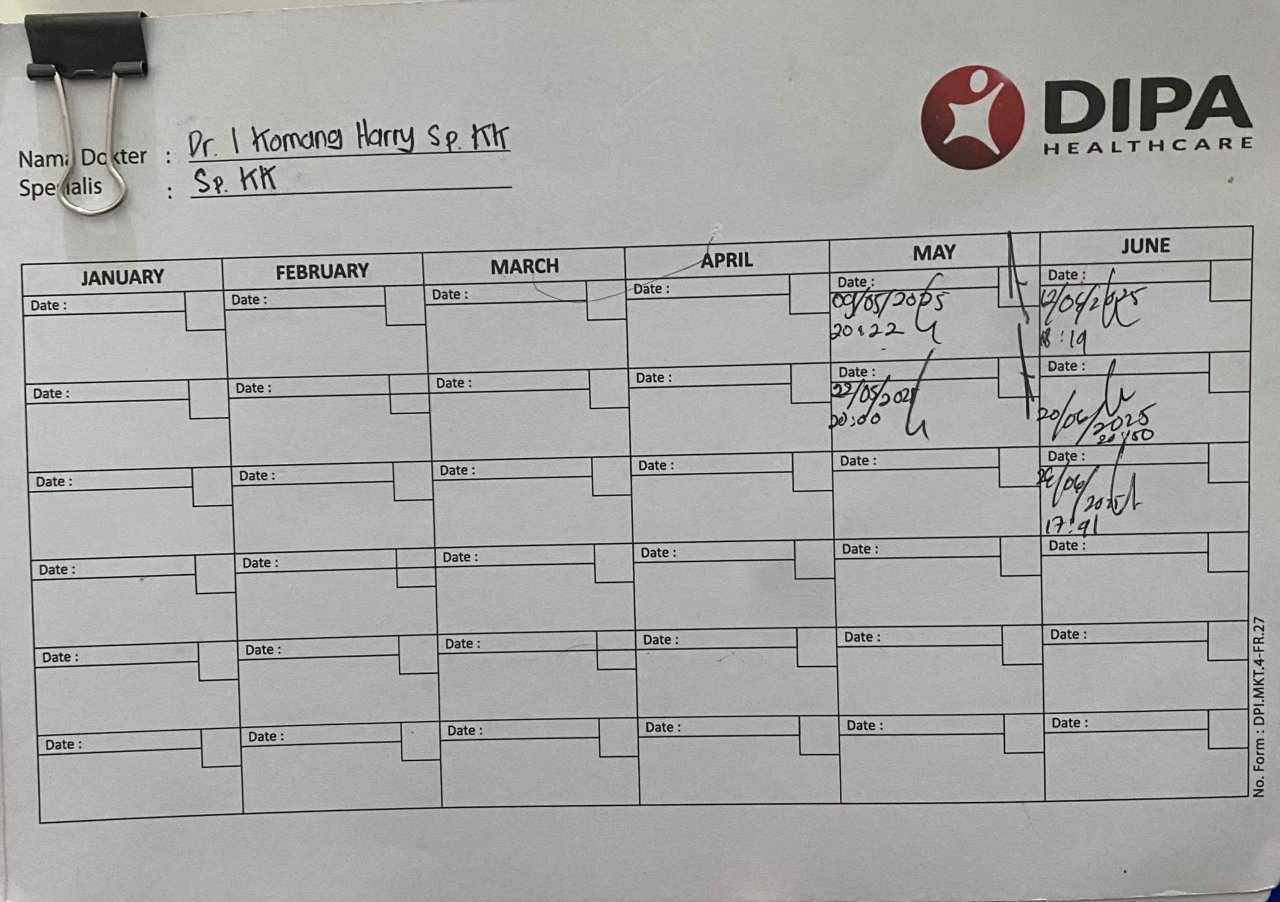 DIPA
HEALTHCARE
Nama Dokter : Dr. I Komang Harry Sp. KK
Spesialis : Sp. KK
JANUARY FEBRUARY MARCH APRIL MAY JUNE
Date : Date : Date : Date : Date : Date :
09/05/2025 12/06/2025
20:22 18:19
Date : Date : Date : Date : Date : Date :
22/05/2025
20:00 20/06/2025
20:50
Date : Date : Date : Date : Date : Date :
/06/2025
Date : Date : Date : Date : Date : Date :
Date : Date : Date : Date : Date : Date :
Date : Date : Date : Date : Date : Date :
No. Form : DPI.MKT.4-FR.27